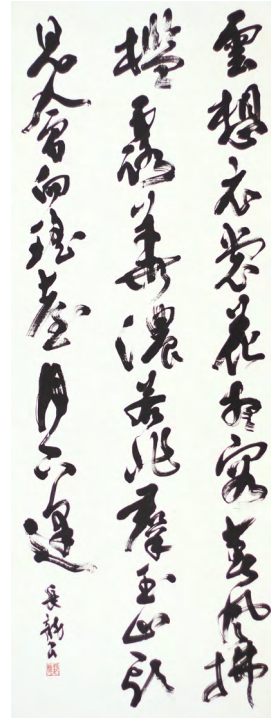 雲想衣裳花想容春風拂
檻露華濃若非羣玉山頭
見會向瑤臺月下逢